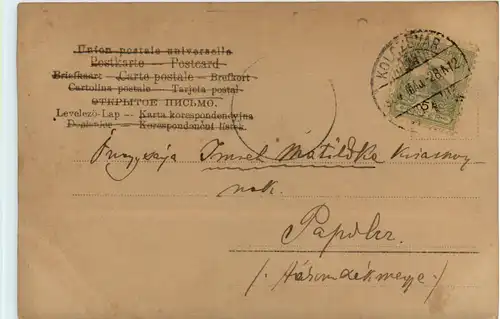 Union postale universelle
Postkarte — Postcard
Briefkaart — Carte postale — Brefkort
Cartolina postale — Tarjeta postal
ОТКРЫТОЕ ПИСЬМО.
Levelező-Lap — Karta korespondencyjna
Dopisnice — Korespondenční lístek.
KOLOZSVÁR
Imreh Matildka kisasszony
nak.
Papolcz.
(Háromszékmegye.)